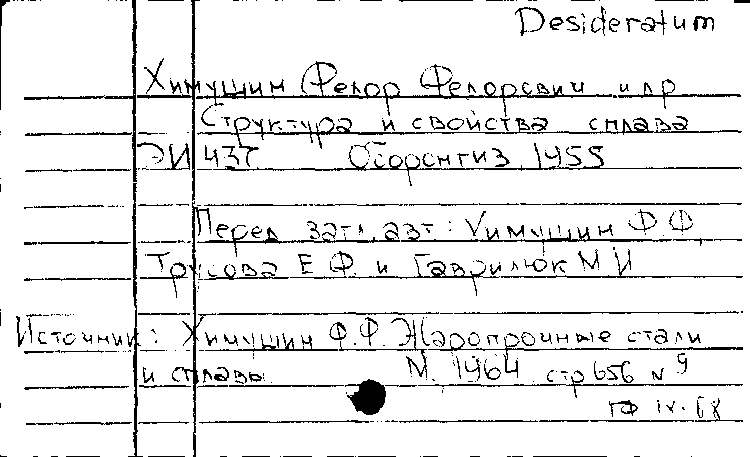 Desideratum
Химушин Федор Федорович и др
Структура и свойства сплава
ЭИ 437 Оборонгиз, 1955
Перед загл. авт: Химушин Ф Ф,
Трусова Е. Ф. и Гаврилюк М И
Источник: Химушин Ф.Ф. Жаропрочные стали
и сплавы М. 1964 стр 656 № 9
IV-68